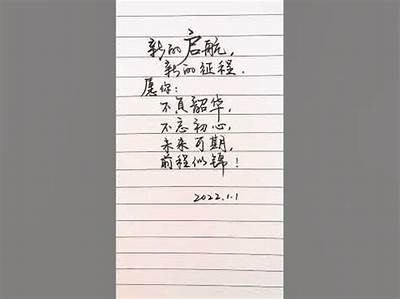 新的启航，
新的征程．
愿你：
不负韶华，
不忘初心，
未来可期，
前程似锦！
2022.1.1